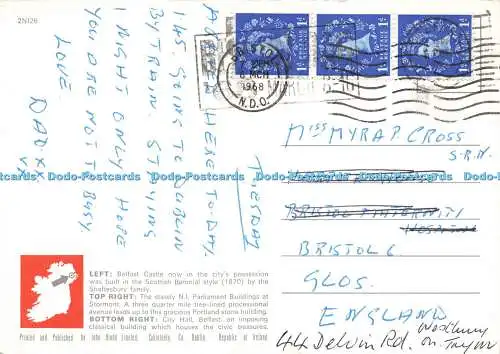 2NI26
A
HERE TO-DAY.
I AS GOING TO DUBLIN
BY TRAIN. STAYING
1 NIGHT ONLY HOPE
YOU ARE NOT TO BUSY
LOVE
DADXX
XX
TUESDAY
BRISTOL
6 MCH
1968
N.D.O.
1D
1D
1D
MISS MYRA P. CROSS
S.R.N.
BRISTOL MATERNITY
HOSPITAL
BRISTOL 6
GLOS.
ENGLAND
44 Delvin Rd. Westbury
on. Trym
LEFT: Belfast Castle now in the city's possession
was built in the Scottish baronial style (1870) by the
Shaftesbury family.
TOP RIGHT: The stately N.I. Parliament Buildings at
Stormont. A three quarter mile tree-lined processional
avenue leads up to this gracious Portland stone building.
BOTTOM RIGHT: City Hall, Belfast, an imposing
classical building which houses the civic treasures.
Printed and Published by John Hinde Limited, Cabinteely Co. Dublin, Republic of Ireland
Dodo-Postcards Dodo-Postcards Dodo-Postcards Dodo-Postcards